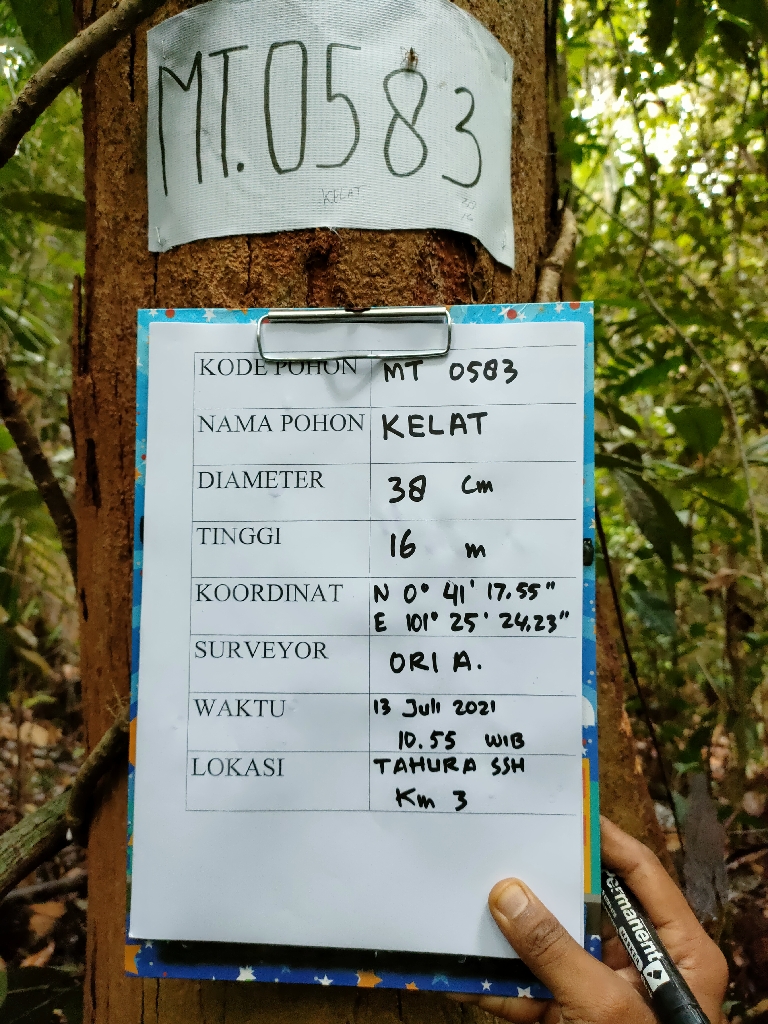 MT.0583
KELAT
KODE POHON MT 0583
NAMA POHON KELAT
DIAMETER 38 cm
TINGGI 16 m
KOORDINAT N 0° 41' 17.55"
E 101° 25' 24.23"
SURVEYOR ORI A.
WAKTU 13 Juli 2021
10.55 WIB
LOKASI TAHURA SSH
Km 3
Permanent